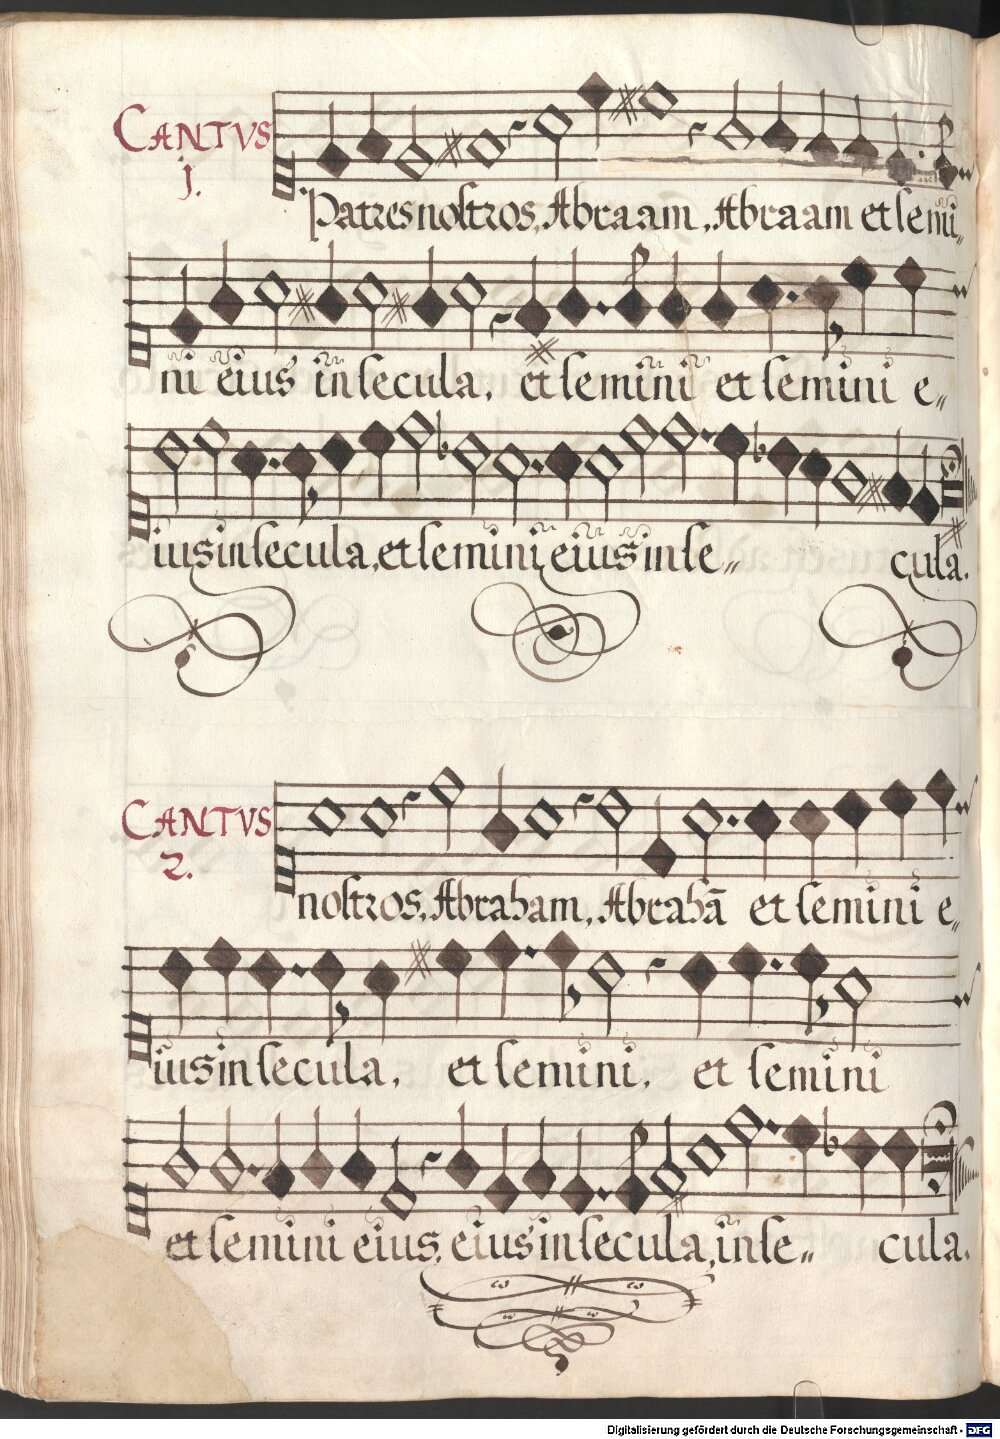 CANTVS
j.
Patres nostros, Abraam, Abraam et semi,,
ni eius in secula, et semini et semini e,,
ius in secula, et semini eius in se,, cula.
CANTVS
2.
nostros, Abraham, Abrahã et semini e,,
ius in secula, et semini, et semini
et semini eius, eius in secula, in se,, cula.
Digitalisierung gefördert durch die Deutsche Forschungsgemeinschaft - DFG